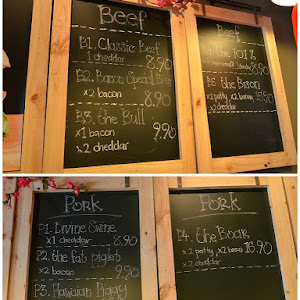 Beef
B1. Classic Beef
1 cheddar 8.90
B2. Bacon Special Beef
x2 bacon 8.90
B3. the Bull
x1 bacon 9.90
x2 cheddar
Beef
the 101%
8.90
the Bison
x2 patty, x2 bacon
x2 cheddar
Pork
P1. Divine Swine
x1 cheddar 8.90
P2. the fab piglets
x2 bacon 9.90
P3. Hawaiian Piggy
Pork
P4. the Boar
x2 patty, x2 bacon
x2 cheddar